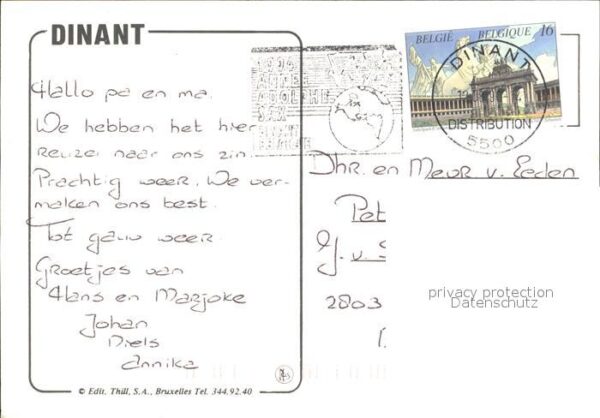 DINANT
BELGIË BELGIQUE 16
DINANT
DISTRIBUTION
5500
Hallo pa en ma.
We hebben het hier
reuze naar ons zin
Prachtig weer. We ver-
maken ons best.
Tot gauw weer
Groetjes van
Hans en Marjoke
Johan
Niels
Annika
Dhr. en Mevr v. Eeden
Pet
J. v. S
2803
privacy protection
Datenschutz
© Edit. Thill, S.A., Bruxelles Tel. 344.92.40